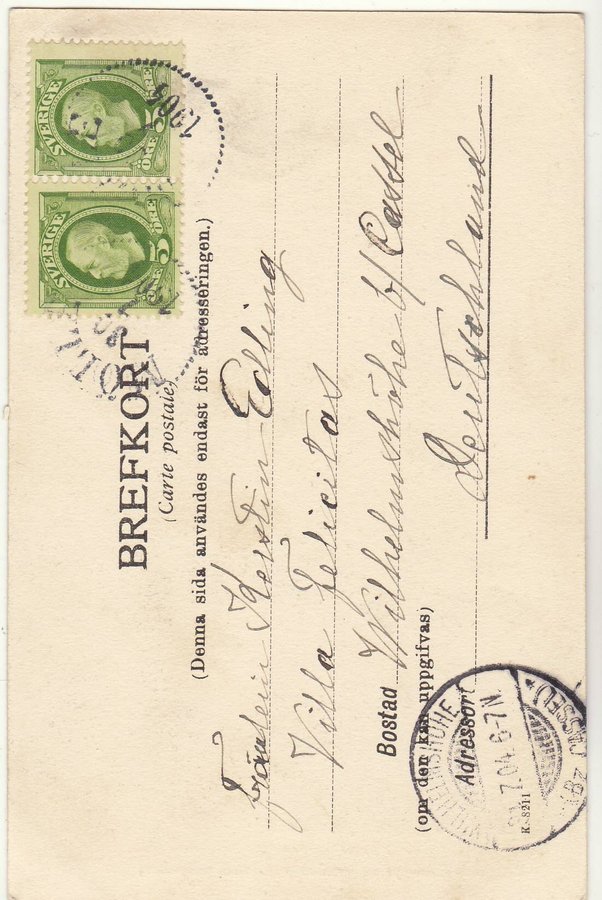 BREFKORT
(Carte postale)
(Denna sida användes endast för adresseringen.)
SVERIGE 5 ÖRE
SVERIGE 5 ÖRE
1904
Fräulein Kerstin Edling
Villa Felicitas
Bostad Wilhelmshöhe b/ Cassel
(om den kan uppgifvas)
Adressort Deutschland
K. 8211
WILHELMSHÖHE
7.04. 6-7N.
(BZ CASSEL)